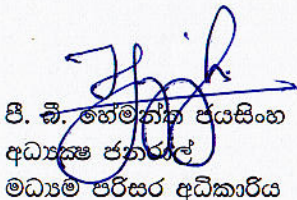 පී. බී. හේමන්ත ජයසිංහ
අධ්‍යක්ෂ ජනරාල්
මධ්‍යම පරිසර අධිකාරිය